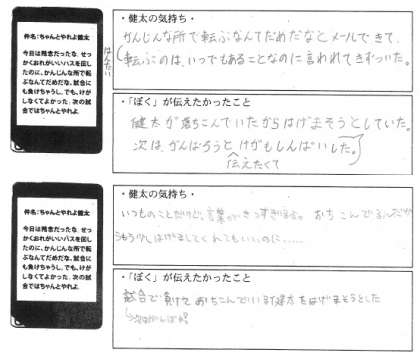 件名：ちゃんとやれよ健太
今日は残念だったな、せっ
かくおれがいいパスを回し
たのに、かんじんな所で転
ぶなんてだめだな。試合に
も負けちゃうし。でも、けが
しなくてよかった。次の試
合ではちゃんとやれよ
・健太の気持ち・
かんじんな所で転ぶなんてだめだなとメールできて、
転ぶのは、いつでもあることなのに言われてきずついた。
・「ぼく」が伝えたかったこと
健太が落ちこんでいたからはげまそうとしていた。
次は、がんばろうとけがもしんぱいした。
伝えたくて
件名：ちゃんとやれよ健太
今日は残念だったな、せっ
かくおれがいいパスを回し
たのに、かんじんな所で転
ぶなんてだめだな。試合に
も負けちゃうし。でも、けが
しなくてよかった。次の試
合ではちゃんとやれよ
・健太の気持ち・
いつものことだけど、言葉がきつすぎる。おちこんでるんだから
もう少しはげましてくれてもいいのに……
・「ぼく」が伝えたかったこと
試合で負けておちこんでいる健太をはげまそうとした
次はがんばれ